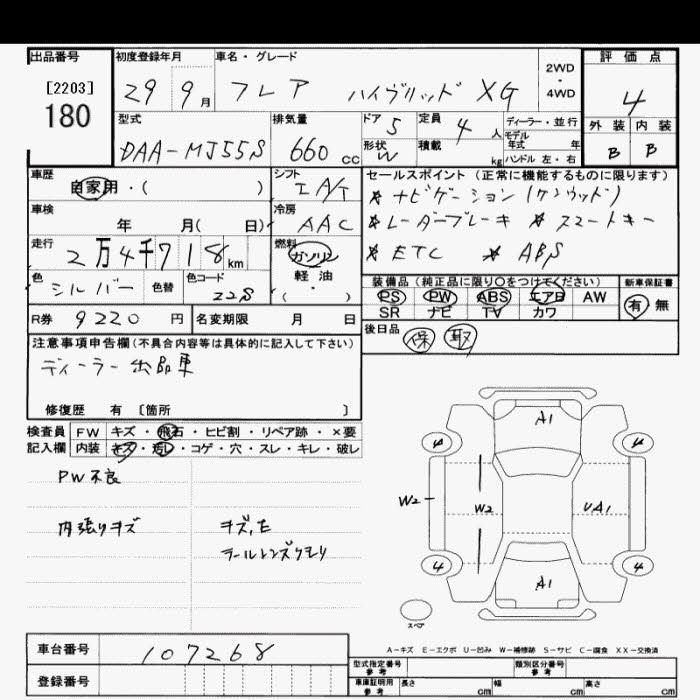 出品番号 初度登録年月 車名・グレード 2WD・4WD 評価点
[2203]
180
29 9月 フレア ハイブリッド XG 4
型式 排気量 ドア 5 定員 4 人 ディーラー・並行 外装 内装
DAA-MJ55S 660 CC 形状 W 積載 kg モデル年式 年 B B
ハンドル 左・右
車歴 自家用・( ) シフト IA/T セールスポイント (正常に機能するものに限ります)
＊ナビゲーション(ケンウッド)
車検 年 月( 日) 冷房 AAC ＊レーダーブレーキ ＊スマートキー
走行 2万4千718km 燃料 ガソリン・軽油・( ) ＊ETC ＊ABS
色 シルバー 色替 色コード Z2S 装備品 (純正品に限り○をつけてください) 新車保証書
PS PW ABS エアB AW 有 無
SR ナビ TV カワ
R券 9220 円 名変期限 月 日 後日品 保 取
注意事項申告欄(不具合内容等は具体的に記入して下さい)
ディーラー出品車
修復歴 有 〔箇所 〕
検査員 FW キズ・飛石・ヒビ割・リペア跡・×要
記入欄 内装 キズ・汚レ・コゲ・穴・スレ・キレ・破レ
PW不良
内張りキズ キズ,E
テールレンズクモリ
A1
4 4
W2 W2 UA1
4 4
A1
スペア
A-キズ E-エクボ U-凹み W-補修跡 S-サビ C-腐食 XX-交換済
車台番号 107268 型式指定番号 参考 類別区分番号 参考
登録番号 車庫証明用 参考 長さ cm 幅 cm 高さ cm